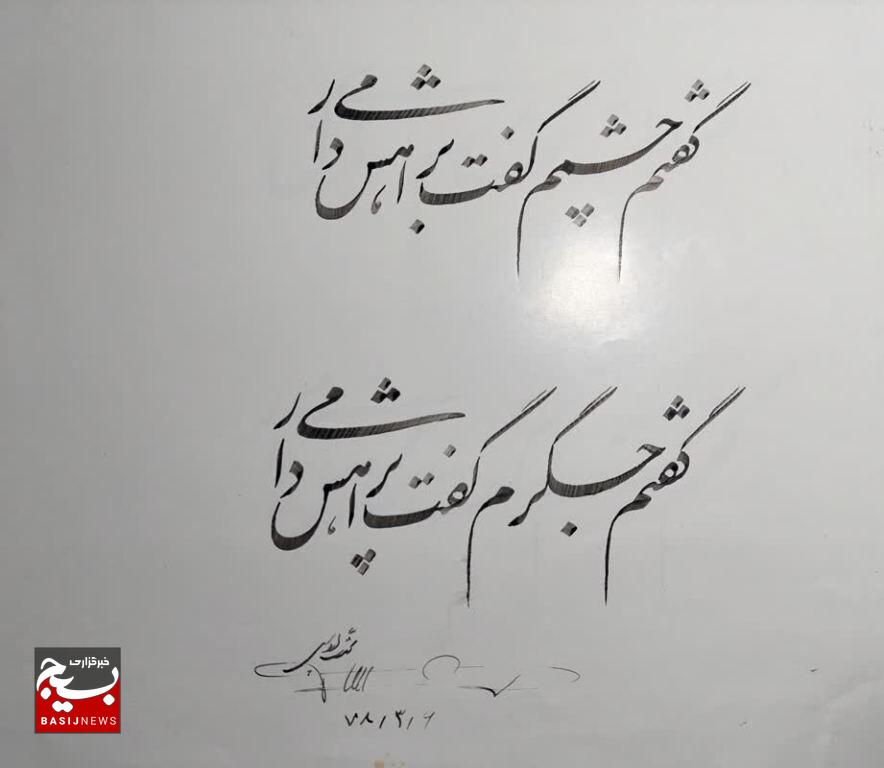 گفتم چشمم گفت براهش می دار
گفتم جگرم گفت پر آهش می دار
۷۸/۳/۶
خبرگزاری
بسیج
BASIJNEWS